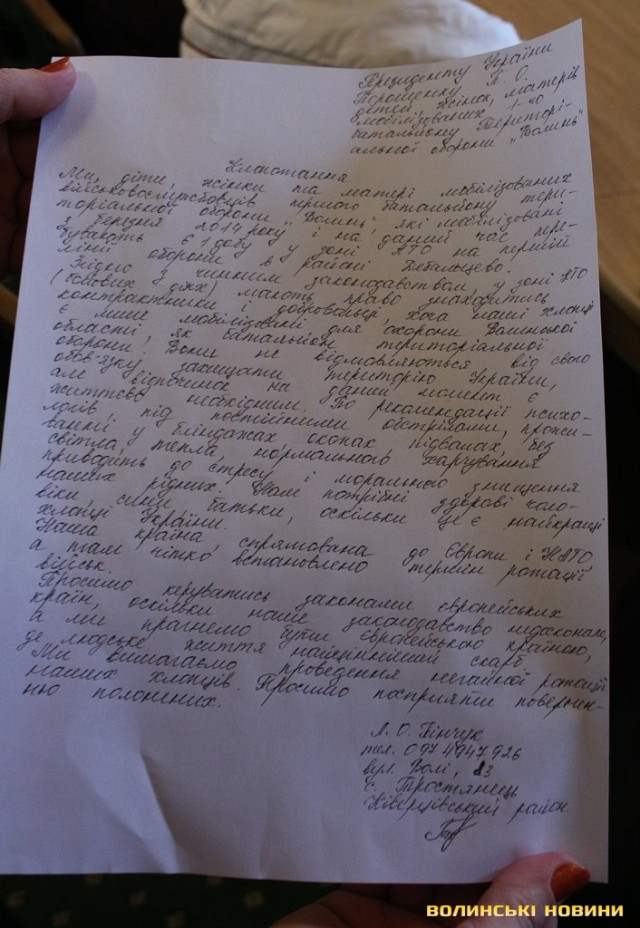 Президенту України
Порошенку П. О.
дітей, жінок, матерів
мобілізованих 1-го
батальйону Територі-
альної оборони "Волинь"
Клопотання
Ми, діти, жінки та матері мобілізованих
військовослужбовців першого батальйону тери-
торіальної оборони "Волинь", які мобілізовані
з березня 2014 року і на даний час пере-
бувають є 1 добу у зоні АТО на першій
лінії оборони в районі Дебальцево.
Згідно з чинним законодавством, у зоні АТО
(бойових діях) мають право знаходитись
контрактники і добровольці, хоча наші хлопці
є лише мобілізовані для охорони Волинської
області, як батальйон територіальної
оборони! Вони не відмовляються від свого
обов'язку захищати територію України,
але відпочинок на даний момент є
життєво необхідним. По рекомендації психо-
логів, під постійними обстрілами, прожи-
ванні у бліндажах окопах підвалах, без
світла, тепла, нормального харчування
приводить до стресу і морального знищення
наших рідних. Нам потрібні здорові чоло-
віки, сини, батьки, оскільки це є найкращі
хлопці України.
Наша країна спрямована до Європи і НАТО,
а там чітко встановлено термін ротації
військ.
Просимо керуватись законами європейських
країн, оскільки наше законодавство недосконале,
а ми прагнемо бути європейською країною,
де людське життя найцінніший скарб.
Ми вимагаємо проведення негайної ротації
наших хлопців. Просимо посприяти повернен-
ню полонених.
Л. О. Пінчук
тел. 0974947926
вул. 83
с. Тростянець
Ківерцівський район
ВОЛИНСЬКІ НОВИНИ